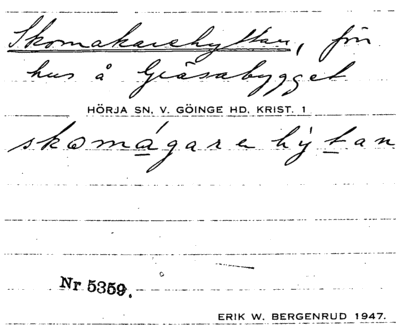 Skomakarehyttan, för
hus å Gräsabygget
HÖRJA SN, V. GÖINGE HD, KRIST. 1
skomágarehýtan
Nr 5359.
ERIK W. BERGENRUD 1947.